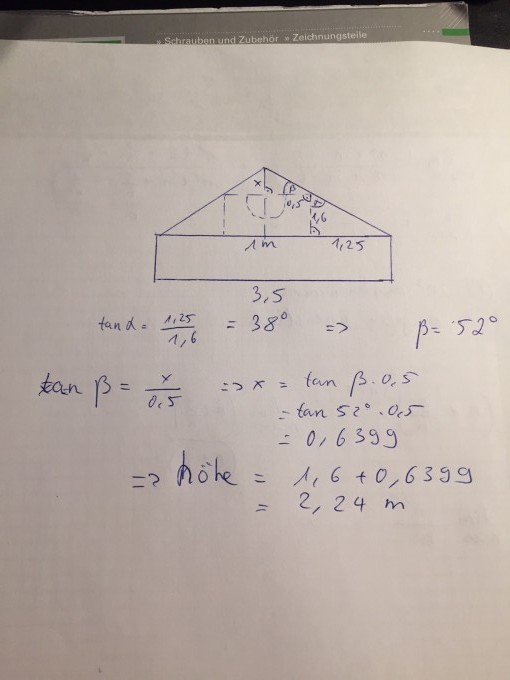 » Schrauben und Zubehör » Zeichnungsteile
x β
0,5 α
1,6
1m 1,25
3,5
tan α = 1,25/1,6 = 38° => β = 52°
tan β = x/0,5 => x = tan β · 0,5
= tan 52° · 0,5
= 0,6399
=> höhe = 1,6 + 0,6399
= 2,24 m